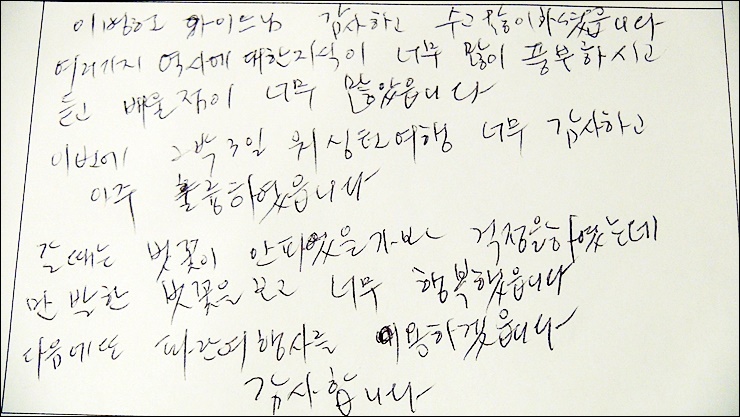 가이드님 감사하고 수고 많이 하셨읍니다
여러가지 역사에 대한지식이 너무 많이 풍부하시고
듣고 배울점이 너무 많았읍니다
이번에 2박3일 워싱턴여행 너무 감사하고
아주 훌륭하였읍니다
갈때는 벗꽃이 안피였을가봐 걱정을하였는데
만발한 벗꽃을보고 너무 행복했읍니다
다음에또 파란여행사를 이용하겠읍니다
감사합니다